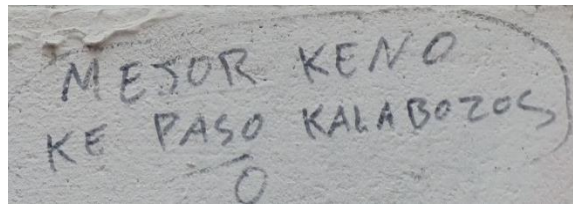 MEJOR KENO
KE PASO KALABOZOS
O